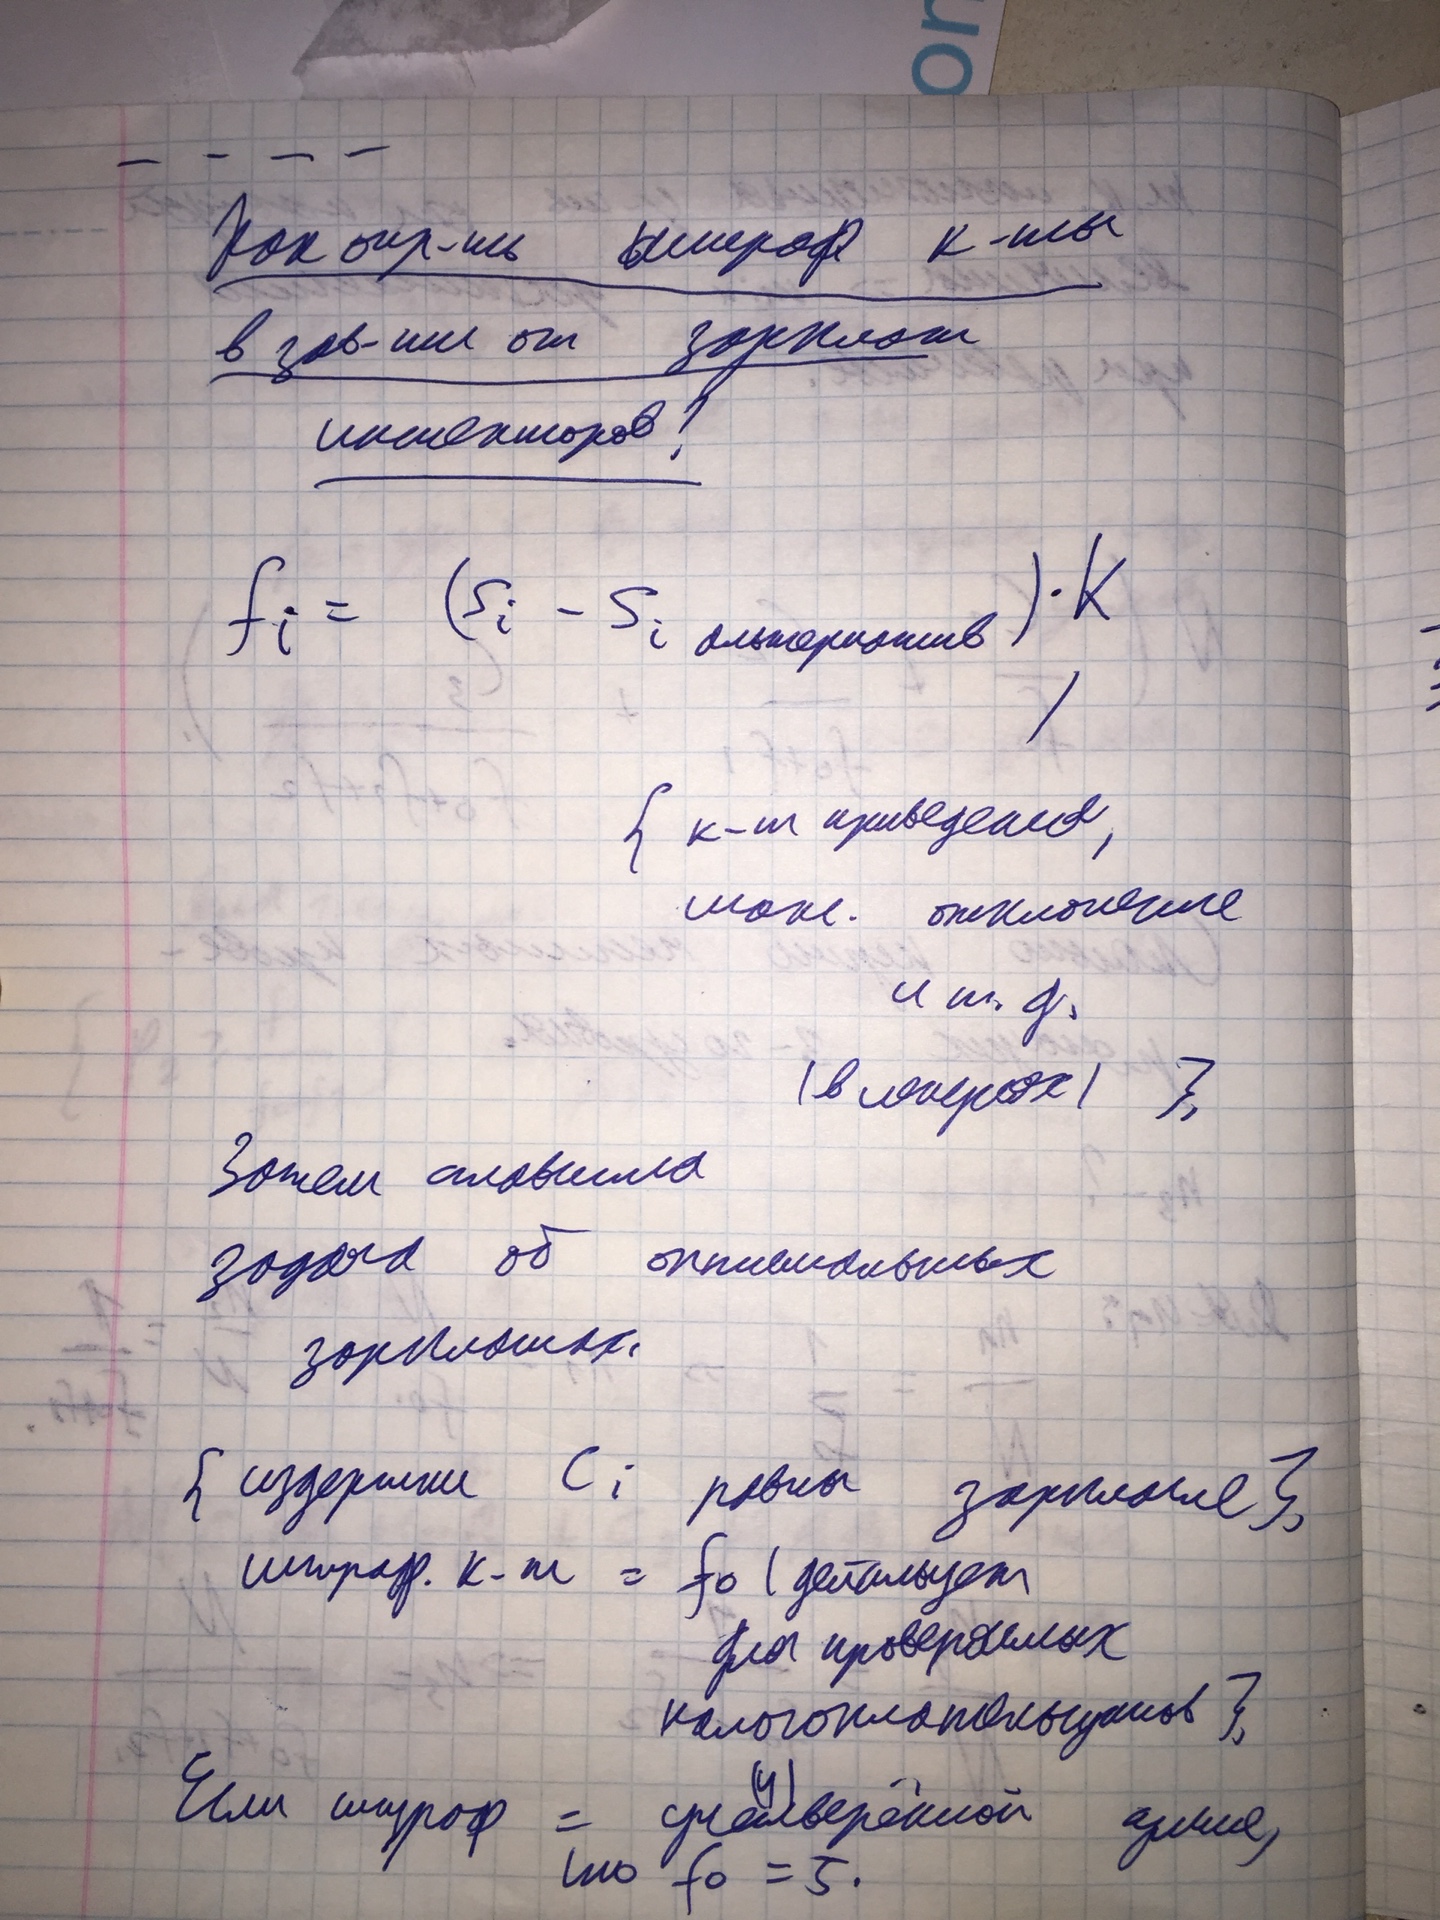 on
Как опр-ть штраф к-ты
в зав-ти от зарплат
инспекторов?
fi = (Si - Si альтернатив) · K
{ к-т приведения,
макс. отклонение
и т. д.
(в
Затем ставится
задача об оптимальных
зарплатах.
{ издержки Ci равны зарплате},
штраф. к-т = f0 (действует
для проверяемых
налогоплательщиков },
Если штраф = учетверённой
(у)
то f0 = 5.